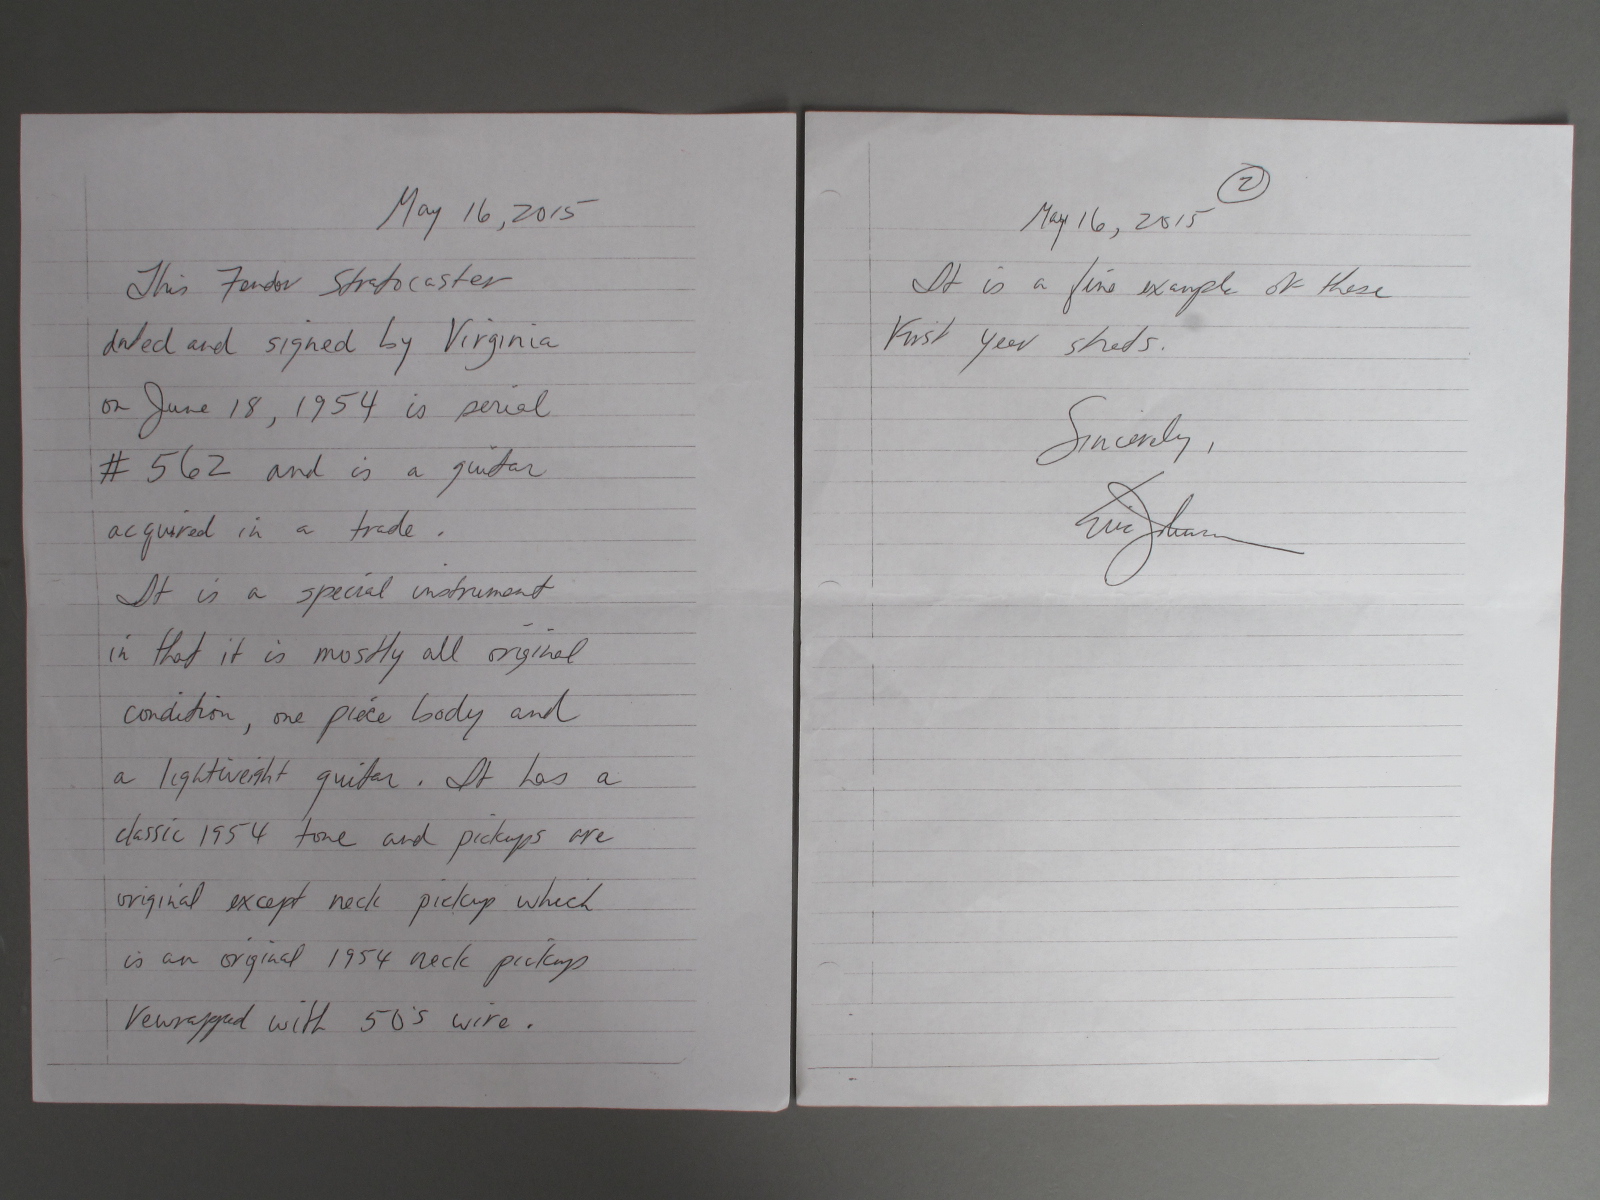 May 16, 2015
This Fender Stratocaster
dated and signed by Virginia
on June 18, 1954 is serial
# 562 and is a guitar
acquired in a trade.
It is a special instrument
in that it is mostly all original
condition, one piece body and
a lightweight guitar. It has a
classic 1954 tone and pickups are
original except neck pickup which
is an original 1954 neck pickup
rewrapped with 50's wire.
2
May 16, 2015
It is a fine example of these
first year strats.
Sincerely,
Eric Johnson